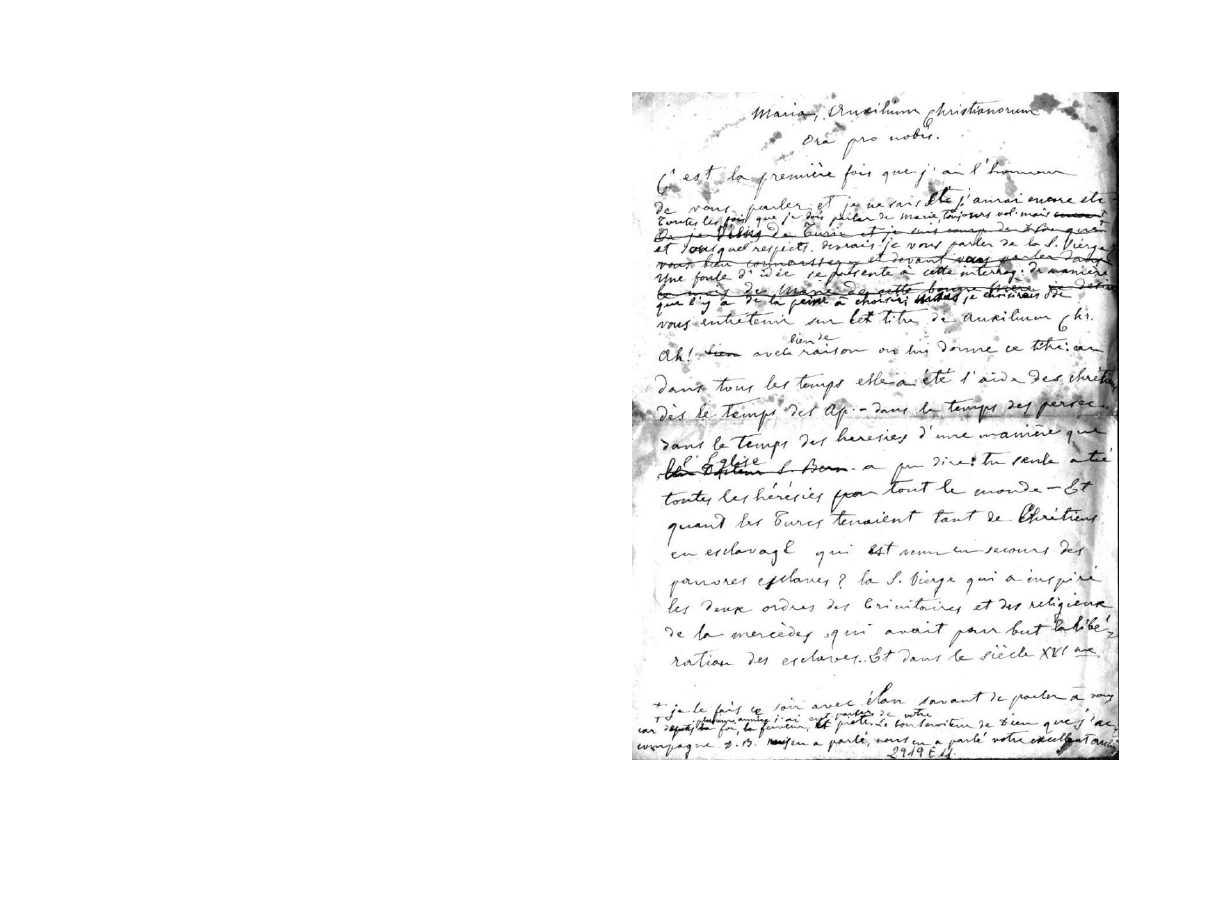 Maria, Auxilium Christianorum
Ora pro nobis.
C'est la première fois que j'ai l'honneur
de vous parler et je ne sais j'aurai encore
Toutes les fois que je dois parler de Marie, toujours mais
Or je viens de Turin et je suis
et sous quel respects. devrais-je vous parler de la S. Vierge
vous bien et devant vous parler dans
Une foule d'idée se présente à cette interrog. de manière
le mois de Marie de cette bonne
que l'y a de la peine à choisir; je choisirais de
vous entretenir sur cet titre de Auxilium Chr.
Ah! bien avec raison on lui donne ce titre: car
bien de
dans tous les temps elle a été l'aide des chrétiens
dès le temps des Ap. - dans le temps des persec.
dans le temps des heresies d'une manière que
l'Eglise
S. Bern. a pu dire: tu seule a tué
toutes les hérésies pour tout le monde - Et
quant les Turcs tenaient tant de Chrétiens
en esclavage qui est venu en secours des
pauvres esclaves? la S. Vierge qui a inspiré
les deux ordres des Trinitaires et des religieux
de la mercèdes qui avait pour but la libé-
ration des esclaves. Et dans le siècle XVI me
+ je le fais ce soir avec élan savant de parler à vous
plusieurs années j'ai parler de votre
car foi, la ferveur, et Le bon Serviteur de Dieu que j'ac
compagne D.B. en a parlé, nous en a parlé votre excellent
2919 E 11